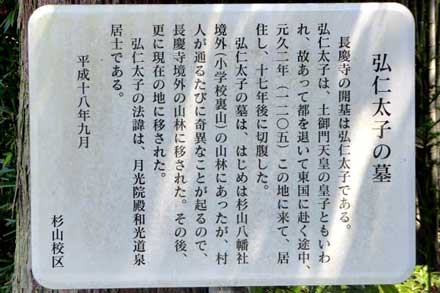 弘仁太子の墓
長慶寺の開基は弘仁太子である。
弘仁太子は、土御門天皇の皇子ともいわ
れ、故あって都を退いて東国に赴く途中、
元久二年（一二〇五）この地に来て、居
住し、十七年後に切腹した。
弘仁太子の墓は、はじめは杉山八幡社
境外（小学校裏山）の山林にあったが、村
人が通るたびに奇異なことが起るので、
長慶寺境外の山林に移された。その後、
更に現在の地に移された。
弘仁太子の法諱は、月光院殿和光道泉
居士である。
平成十八年九月
杉山校区